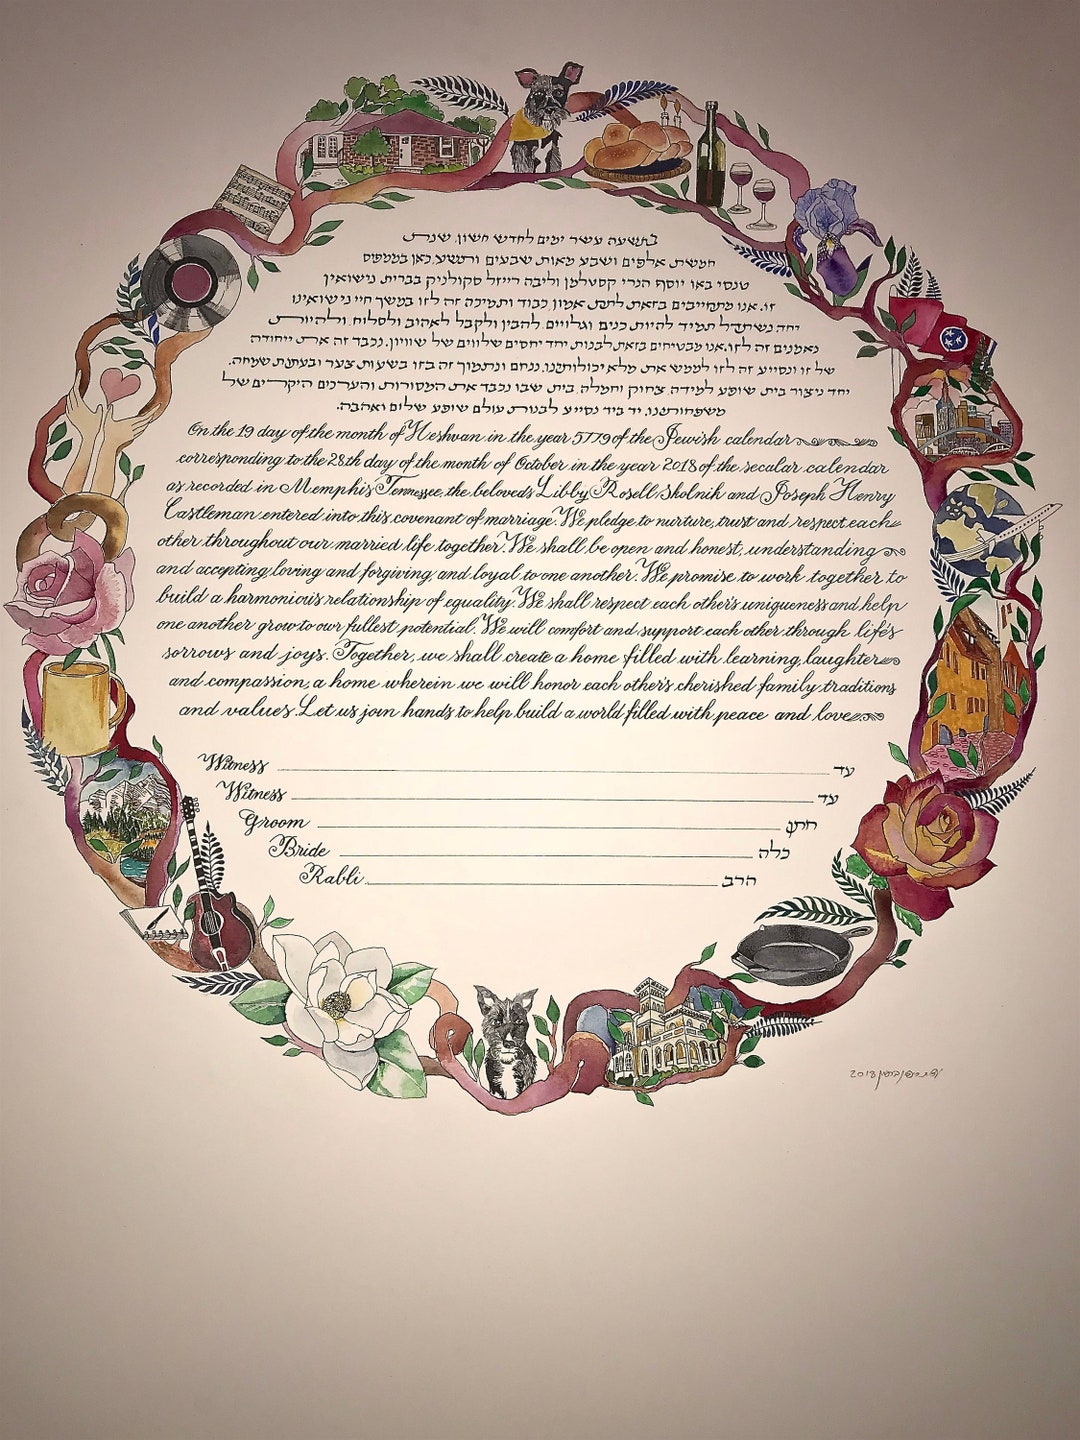 בתשעה עשר ימים לחדש חשון, שנת
חמשת אלפים ושבע מאות שבעים ותשע, כאן בממפס
טנסי באו יוסף הנרי קסטלמן וליבה רייזל סקולניק בברית נישואין
זו. אנו מתחייבים בזאת לתת אמון, כבוד ותמיכה זה לזו במשך חיי נישואינו
יחד נשתדל תמיד להיות כנים וגלויים, להבין ולקבל לאהוב ולסלוח, ולהיות
נאמנים זה לזו. אנו מבטיחים בזאת לבנות יחד יחסים שלווים של שוויון. נכבד זה את ייחודה
של זו ונסייע זה לזו לממש את מלא יכולותינו. ננחם ונתמוך זה בזו בשעות צער ובעתות שמחה.
יחד ניצור בית שופע למידה, צחוק וחמלה, בית שבו נכבד את המסורות והערכים היקרים של
משפחותינו. יד ביד נסייע לבנות עולם שופע שלום ואהבה.
On the 19 day of the month of Heshvan in the year 5779 of the Jewish calendar
corresponding to the 28th day of the month of October in the year 2018 of the secular calendar
as recorded in Memphis Tennessee, the beloveds Libby Rosell Skolnik and Joseph Henry
Castleman entered into this covenant of marriage. We pledge to nurture, trust and respect each
other throughout our married life together. We shall be open and honest, understanding
and accepting, loving and forgiving, and loyal to one another. We promise to work together to
build a harmonious relationship of equality. We shall respect each other's uniqueness and help
one another grow to our fullest potential. We will comfort and support each other through life's
sorrows and joys. Together, we shall create a home filled with learning, laughter
and compassion, a home wherein we will honor each other's cherished family traditions
and values. Let us join hands to help build a world filled with peace and love.
Witness עד
Witness עד
Groom חתן
Bride כלה
Rabbi הרב
2018